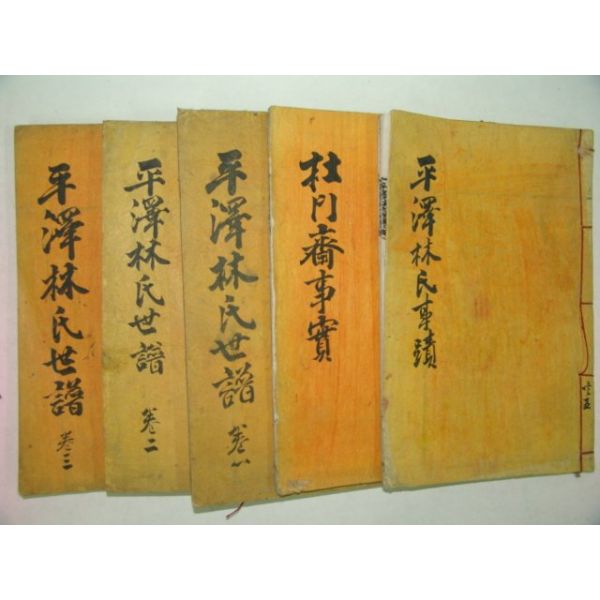 平澤林氏事蹟
杜门齋事實
平澤林氏世譜
卷一
平澤林氏世譜
卷二
平澤林氏世譜
卷三